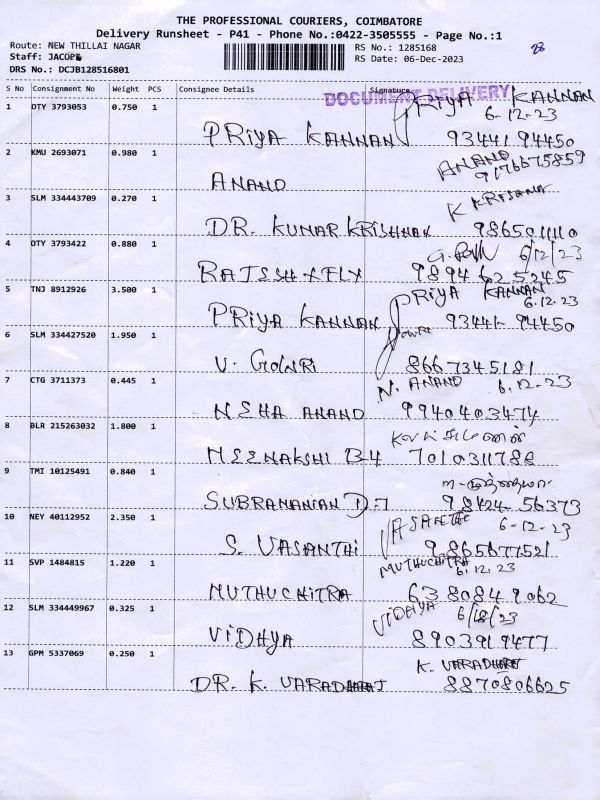 THE PROFESSIONAL COURIERS, COIMBATORE
Delivery Runsheet - P41 - Phone No.:0422-3505555 - Page No.:1
Route: NEW THILLAI NAGAR RS No.: 1285168 28
Staff: JACOPE RS Date: 06-Dec-2023
DRS No.: DCJB128516801
S No Consignment No Weight PCS Consignee Details Signature
DOCUMENT DELIVERY
1 OTY 3793053 0.750 1 PRIYA KANNAN
6.12.23
PRIYA KANNAN 93441 94450
2 KMU 2693071 0.980 1 ANAND
9176675859
ANAND
3 SLM 334443709 0.270 1 K KRISHNA
DR. KUMAR KRISHNAN 9865011110
4 OTY 3793422 0.880 1 6/12/23
98946 25245
5 TNJ 8912926 3.500 1 PRIYA KANNAN
6.12.23
PRIYA KANNAN 93441-94450
6 SLM 334427520 1.950 1
V. GOWRI 8667345181
7 CTG 3711373 0.445 1 N. ANAND 6.12.23
NEHA ANAND 9940403474
8 BLR 215263032 1.800 1
MEENAKSHI B4 7010311788
9 TMI 10125491 0.840 1
SUBRAMANIAN D.7 98424-56373
10 NEY 40112952 2.350 1 VASANTHI 6-12-23
S. VASANTHI 9865677521
11 SVP 1484815 1.220 1 MUTHUCHITRA
6.12.23
MUTHUCHITRA 6380849062
12 SLM 334449967 0.325 1 VIDHYA
VIDHYA 8903919477
13 GPM 5337069 0.250 1 K. VARADHARAJ
DR. K. VARADHARAJ 8870806625